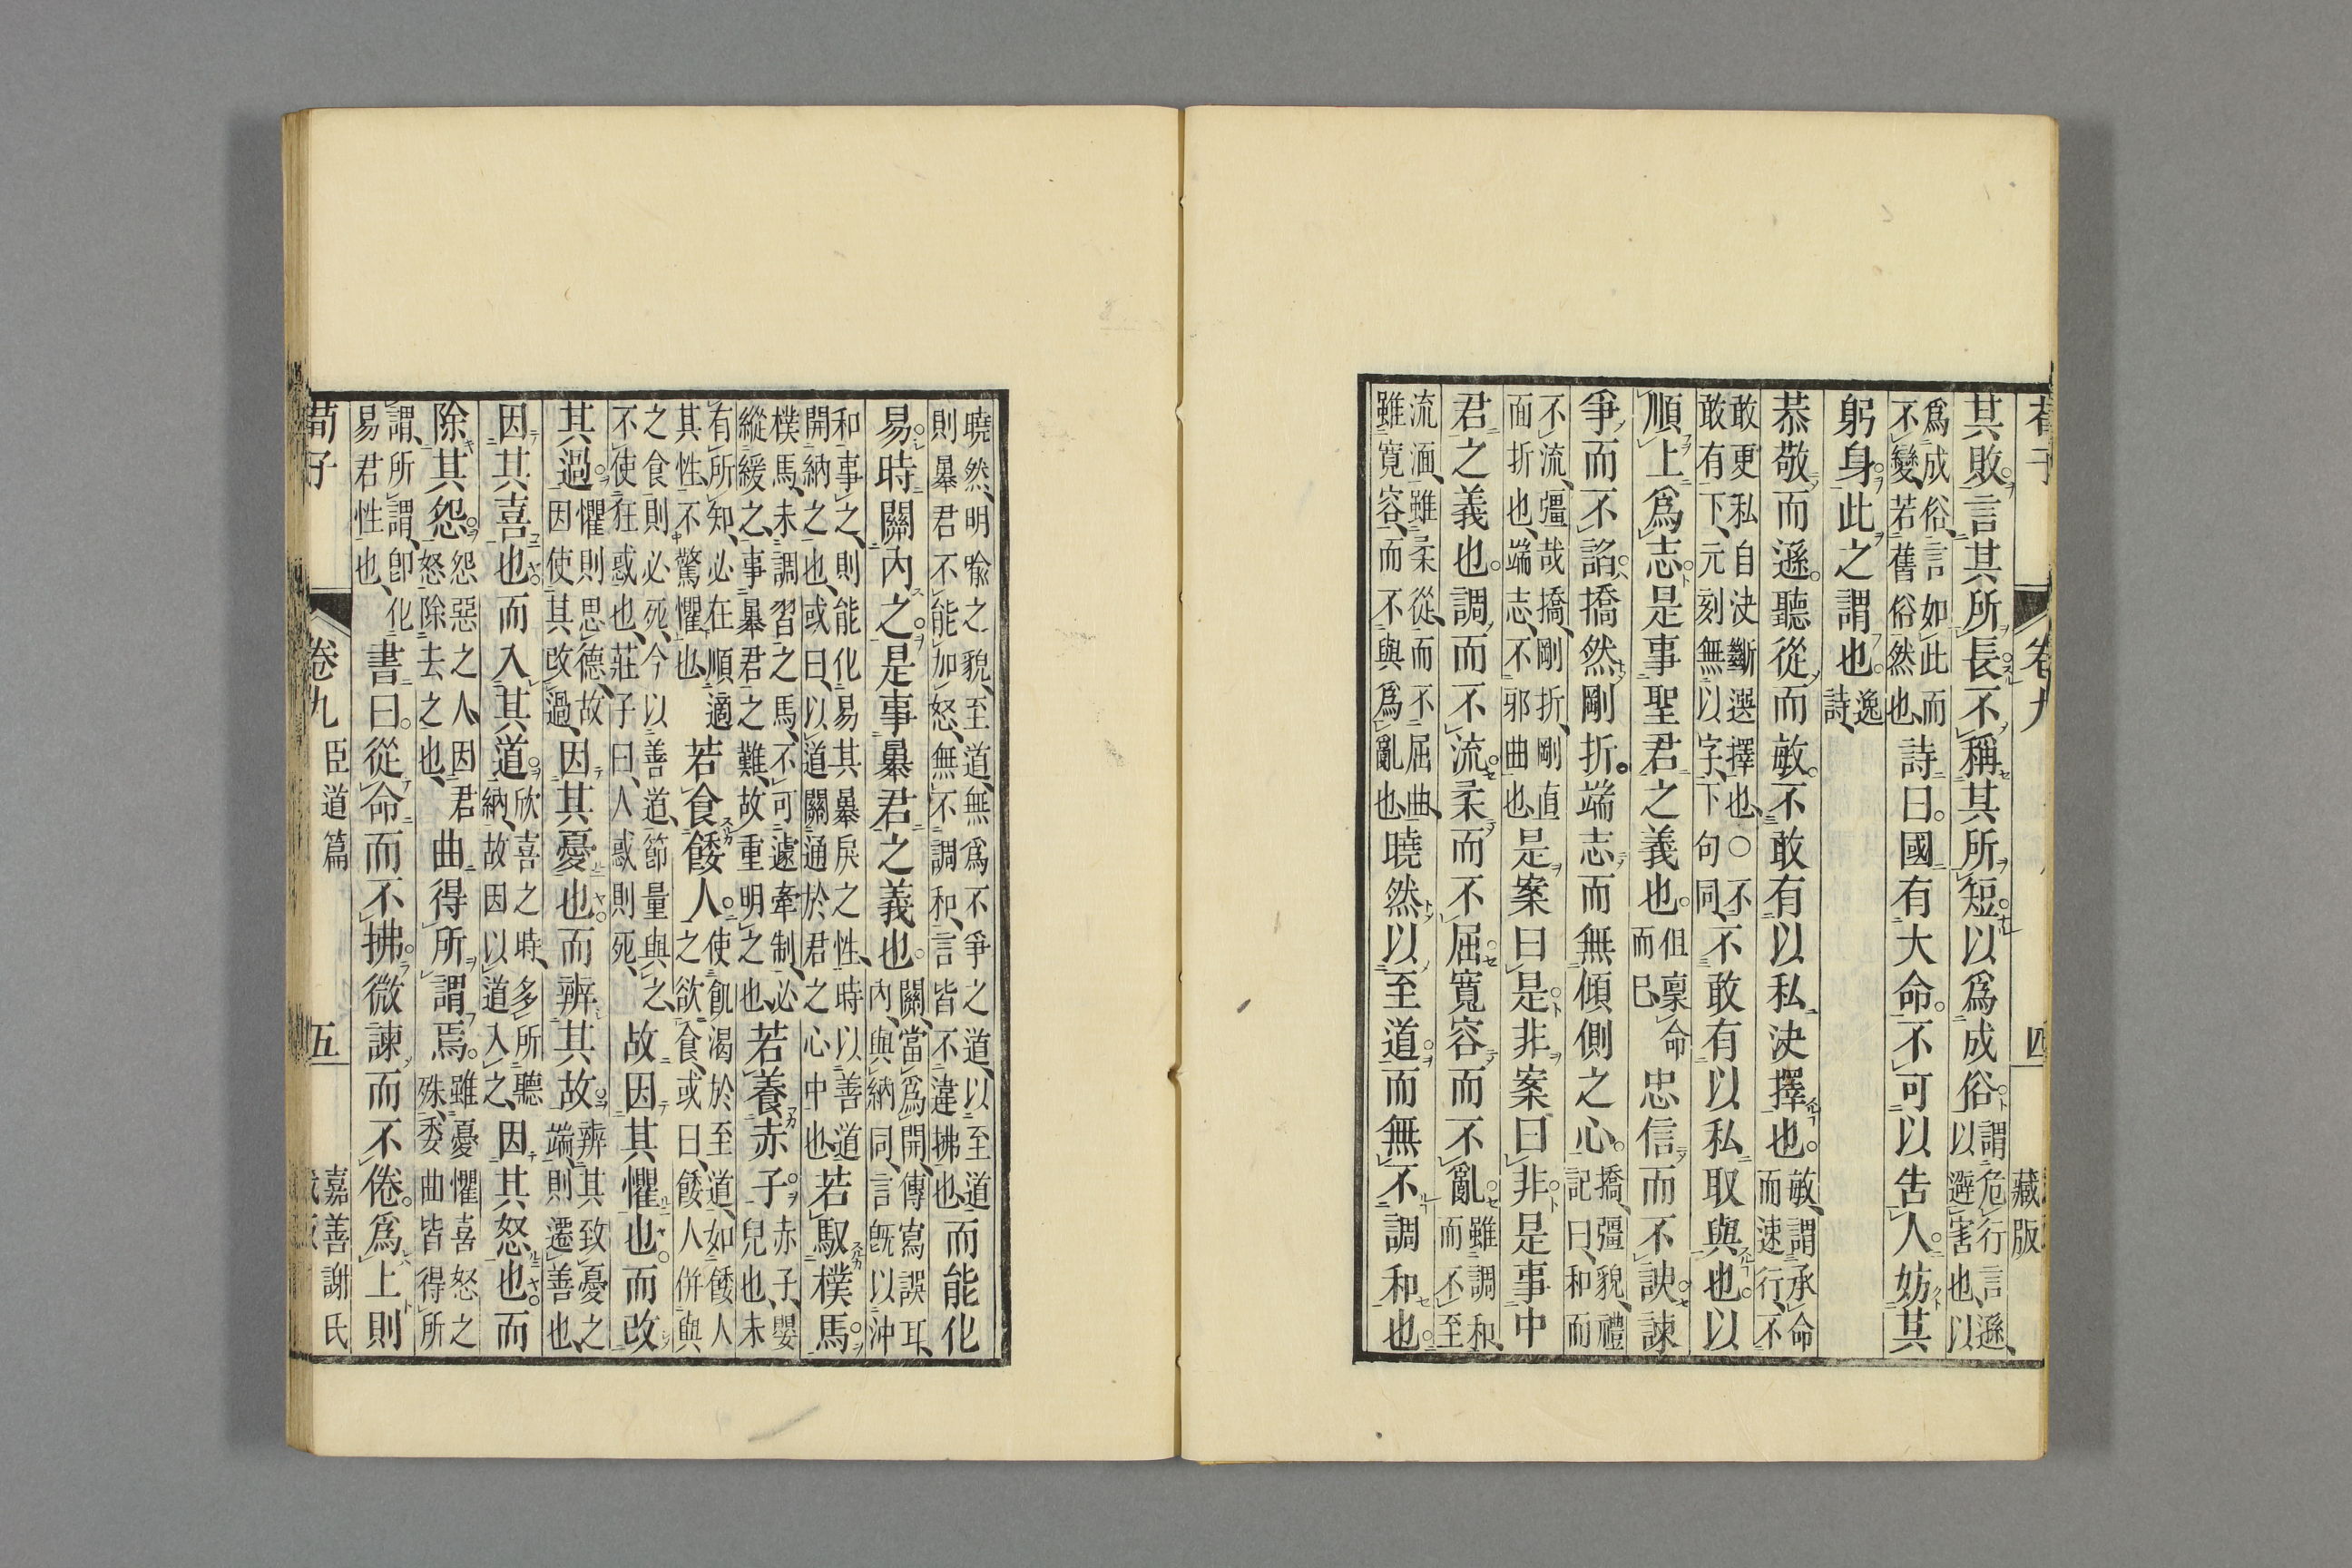 荀子 卷九 四 藏版
其敗言其所長不稱其所短以爲成俗謂危行言遜以避害也以
爲成俗言如此而不變若舊俗然也詩曰國有大命不可以告人妨其
躬身此之謂也逸詩
恭敬而遜聽從而敏不敢有以私決擇也敏謂承命而速行不
敢更私自決斷選擇也○不敢有下元刻無以字下句同不敢有以私取與也以
順上爲志是事聖君之義也但稟命而已忠信而不諛諫
爭而不諂撟然剛折端志而無傾側之心撟彊貌禮記曰和而
不流彊哉撟剛折剛直面折也端志不邪曲也是案曰是非案曰非是事中
君之義也調而不流柔而不屈寬容而不亂雖調和而不至
流湎雖柔從而不屈曲雖寬容而不與爲亂也曉然以至道而無不調和也
曉然明喻之貌至道無爲不爭之道以至道則暴君不能加怒無不調和言皆不違拂也而能化
易時關內之是事暴君之義也關當爲開傳寫誤耳內與納同言旣以沖
和事之則能化易其暴戾之性時以善道開納之也或曰以道關通於君之心中也若馭樸馬
樸馬未調習之馬不可遽牽制必縱緩之事暴君之難故重明之也若養赤子赤子嬰兒也未
有所知必在順適其性不驚懼也若食餧人使飢渴於至道如餧人之欲食或曰餧人併與
之食則必死今以善道節量與之不使狂惑也莊子曰人惑則死故因其懼也而改
其過懼則思德故因使其改過因其憂也而辨其故辨其致憂之端則遷善也
因其喜也而入其道欣喜之時多所聽納故因以道入之因其怒也而
除其怨怨惡之人因君怒除去之也曲得所謂焉雖憂懼喜怒之殊委曲皆得所
謂所謂卽化易君性也書曰從命而不拂微諫而不倦爲上則
荀子 卷九 臣道篇 五 嘉善謝氏藏版